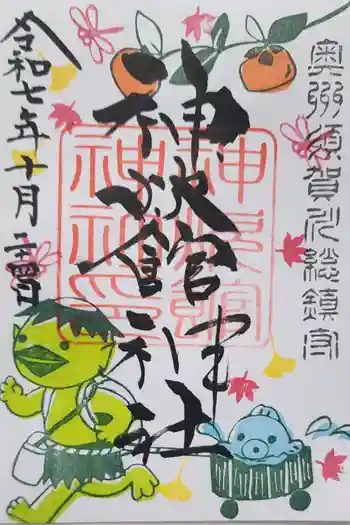 奥州須賀川総鎮守
神炊館神社
神炊館
神社印
令和七年十月二十四日